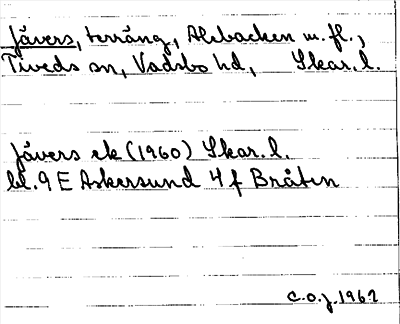 Jävers, terräng, Alebacken m.fl.,
Tiveds sn, Vadsbo hd, Skar. l.
Jävers ek (1960) Skar. l.
bl. 9 E Askersund 4 f Bråten
C.O.J. 1962